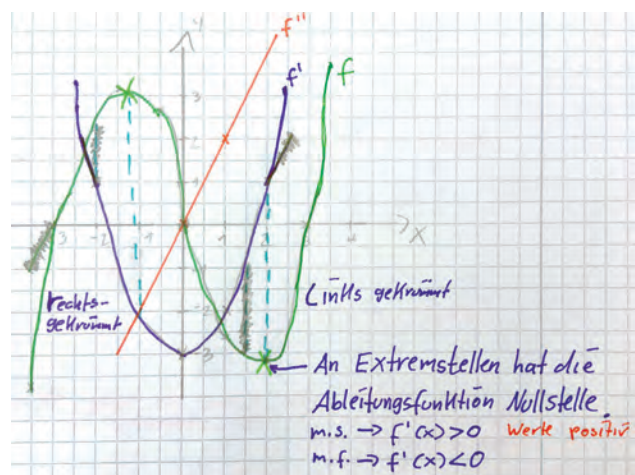 y
f''
f'
f
3
3
2
2
1
-3
-2
-1
1
2
3
4
x
-2
-3
rechts-
gekrümmt
Links gekrümmt
An Extremstellen hat die
Ableitungsfunktion Nullstelle.
m.s. → f'(x)>0 Werte positiv
m.f. → f'(x)<0